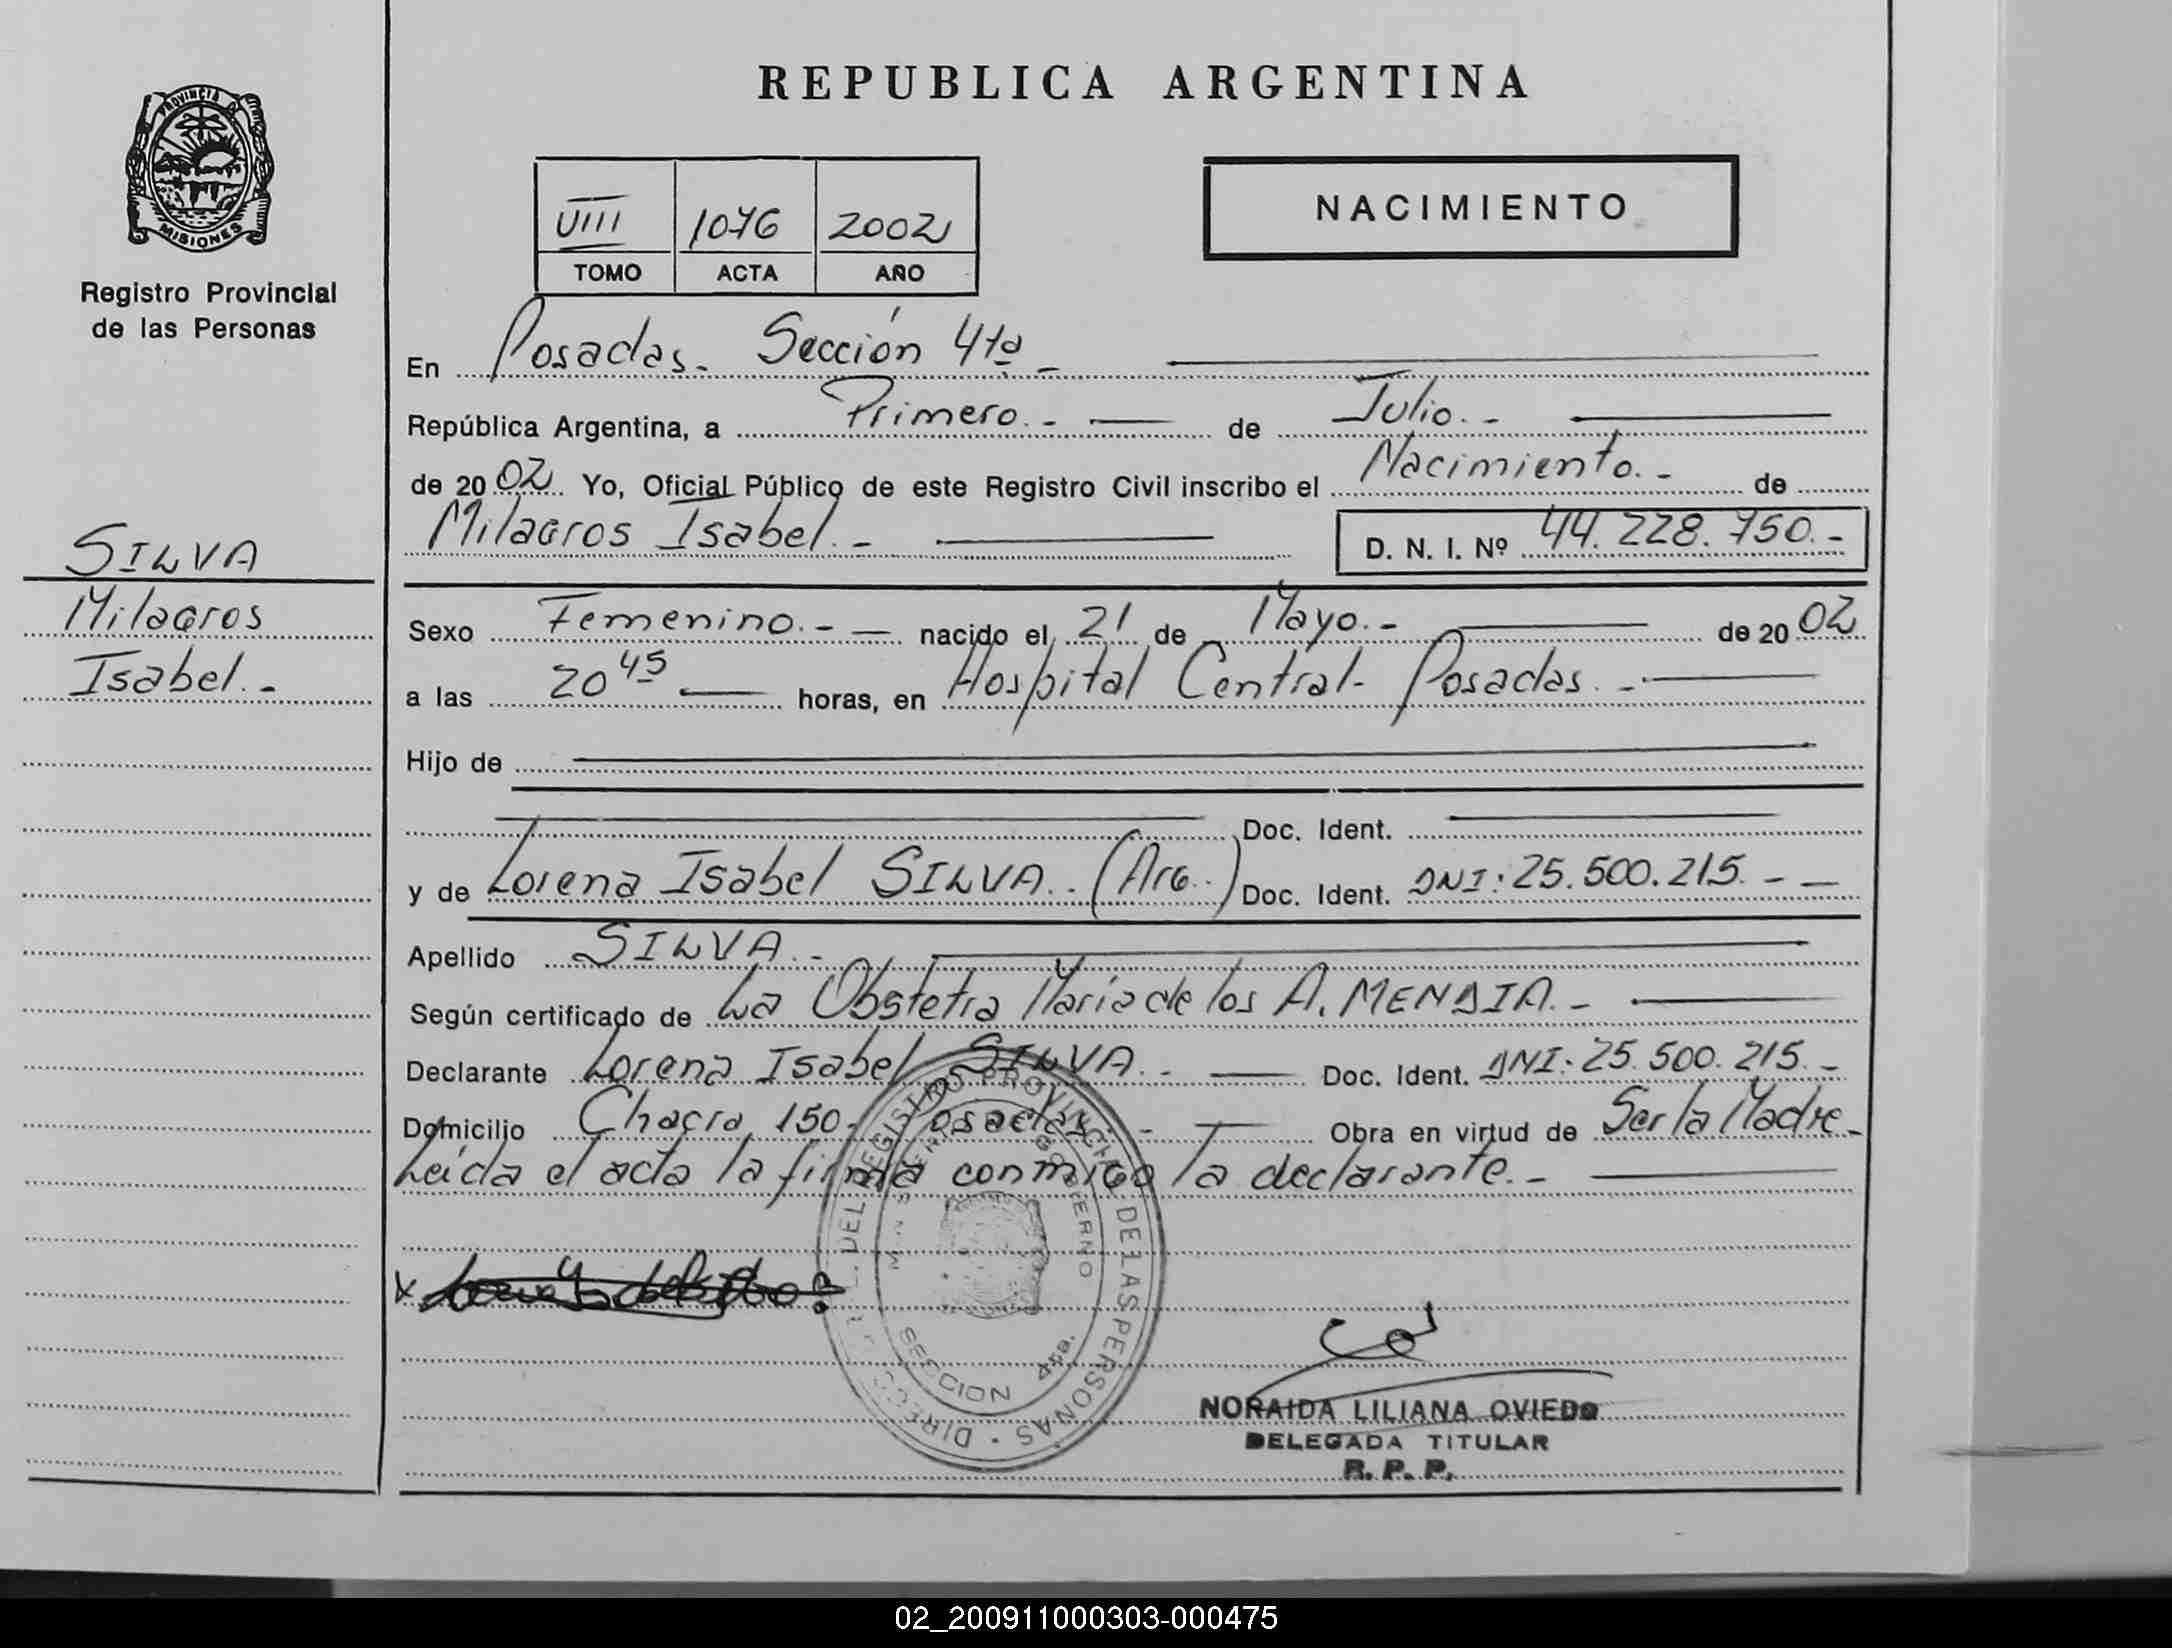 REPUBLICA ARGENTINA
PROVINCIA DE
MISIONES
Registro Provincial
de las Personas
VIII 1076 2002
TOMO ACTA AÑO
NACIMIENTO
SILVA
Milagros
Isabel.-
En Posadas. Sección 4ta-
República Argentina, a Primero.- de Julio.-
de 2002 Yo, Oficial Público de este Registro Civil inscribo el Nacimiento.- de
Milagros Isabel.- D. N. I. Nº 44.228.750.-
Sexo Femenino.- nacido el 21 de Mayo.- de 2002
a las 20 45 horas, en Hospital Central- Posadas.-
Hijo de
Doc. Ident.
y de Lorena Isabel SILVA.. (Arg..) Doc. Ident. DNI: 25.500.215.-
Apellido SILVA.-
Según certificado de La Obstetra María de los A. MENDIA.-
Declarante Lorena Isabel SILVA.- Doc. Ident. DNI: 25.500.215.-
Domicilio Chacra 150- Posadas.- Obra en virtud de Ser la Madre-
Leída el acta la firma conmigo la declarante.-
DIRECC DEL REGISTRO PROVINCIAL DE LAS PERSONAS
GOBIERNO
SECCION 4ta.
NORAIDA LILIANA OVIEDO
DELEGADA TITULAR
R. P. P.
02_200911000303-000475